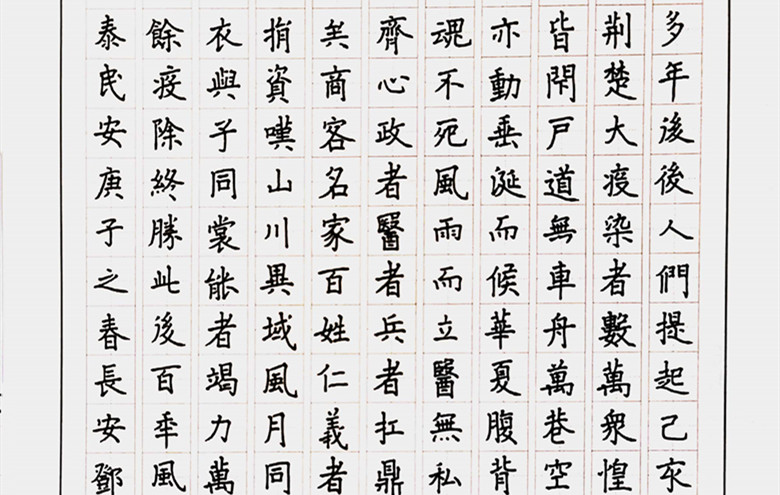 多年後後人們提起己亥
荆楚大疫染者數萬衆惶
皆閇戶道無車舟萬巷空
亦動垂涎而候華夏腹背
魂不死風雨而立醫無私
齊心政者醫者兵者扛鼎
矣商客名家百姓仁義者
捐資嘆山川異域風月同
衣與子同裳能者竭力萬
餘疫除終勝此後百年風
泰民安庚子之春長安鄧